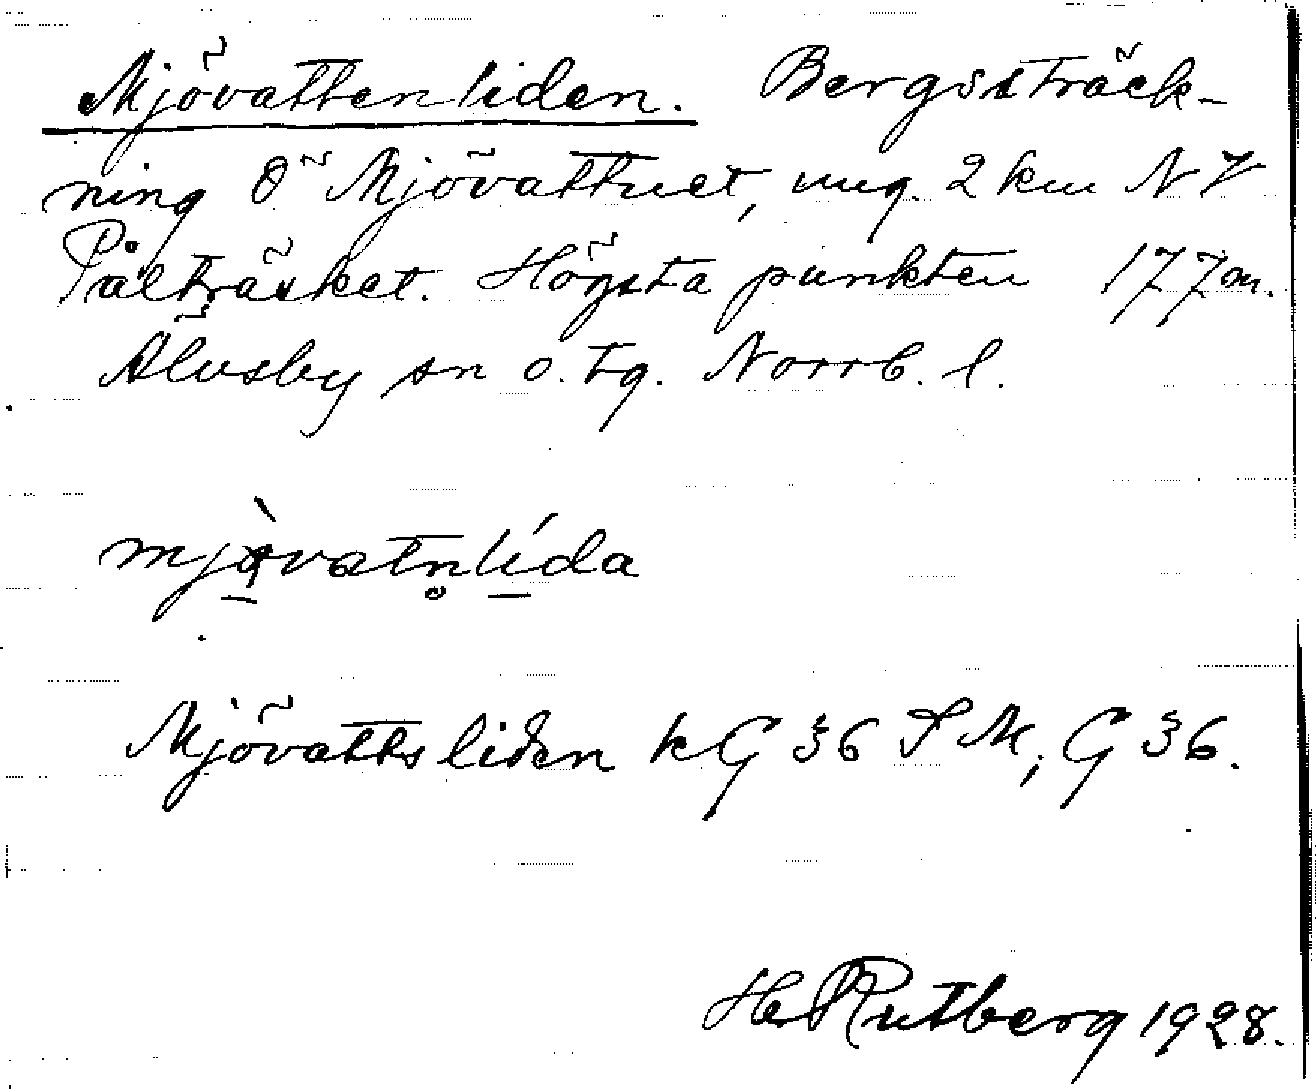 Mjövattenliden. Bergssträck-
ning Ö Mjövattnet, ung. 2 km NV
Pålträsket. Högsta punkten 177 m.
Älvsby sn o. tg. Norrb. l.
mjò̱vatn̥lí̱da
Mjövattsliden kG 36 SM, G 36.
H. Rutberg 1928.